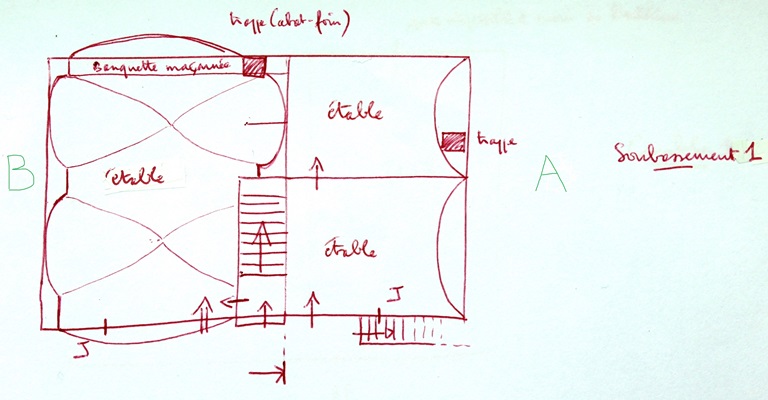 trappe (abat-foin)
Banquette maçonnée
étable
trappe
Soubassement 1
B
étable
A
étable
J
J